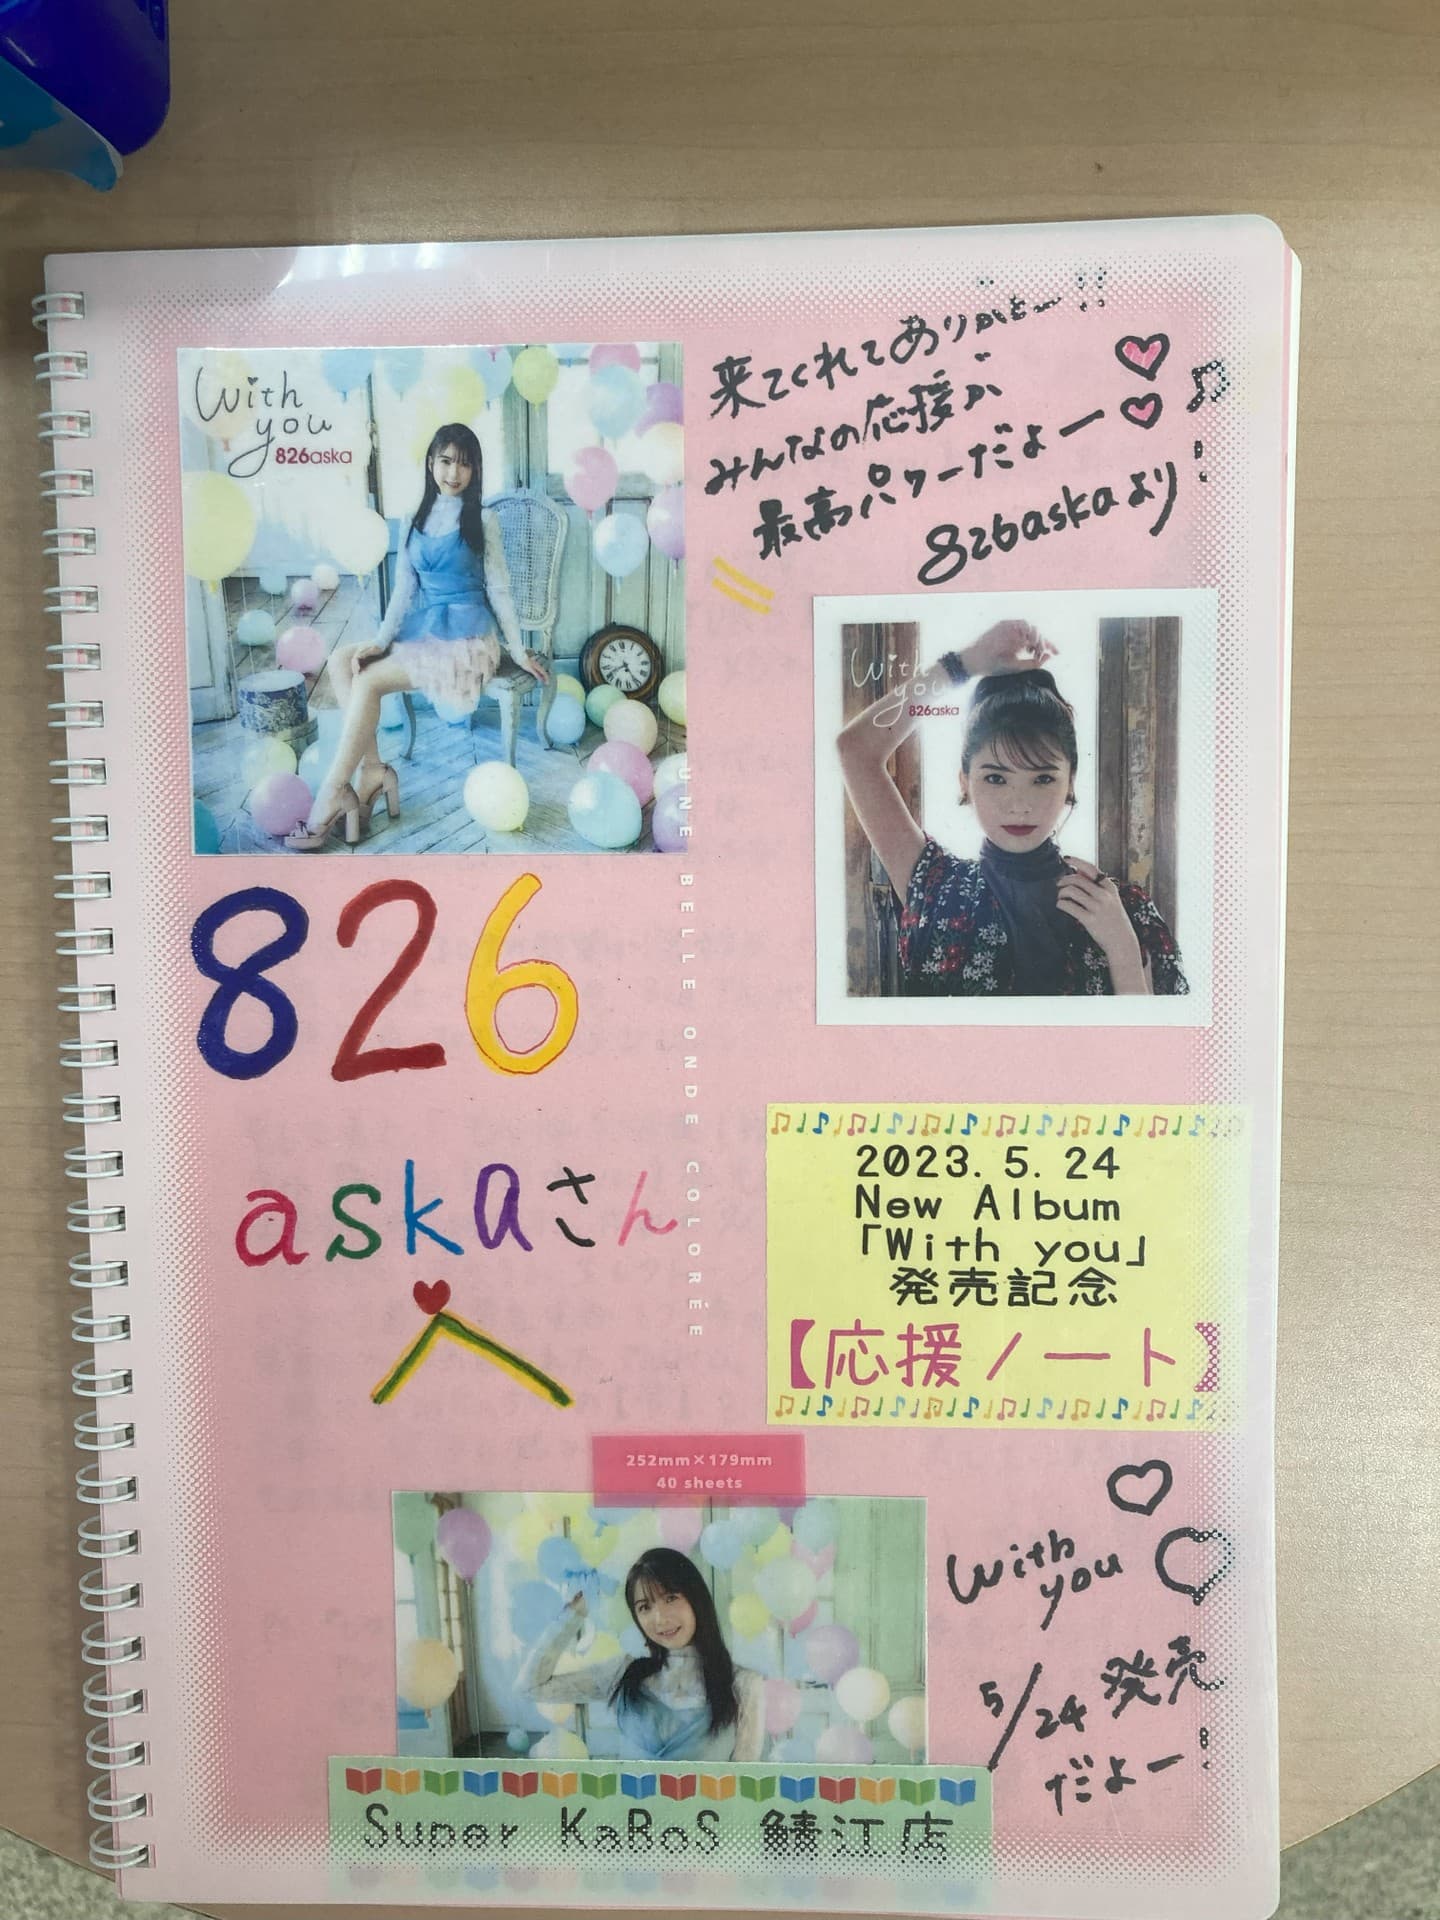 With
you
826aska
来てくれてありがとー!!
みんなの応援が
最高パワーだよー
826askaより
With
you
826aska
UNE BELLE ONDE COLORÉE
826
askaさん
へ
2023.5.24
New Album
「With you」
発売記念
【応援ノート】
252mm×179mm
40 sheets
With
you
5/24 発売
だよー!
Super KaBoS 鯖江店